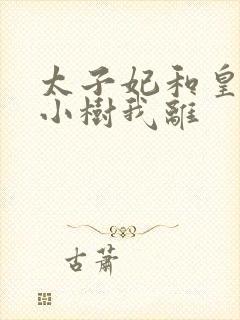 太子妃和皇
小樹我離
古蕭